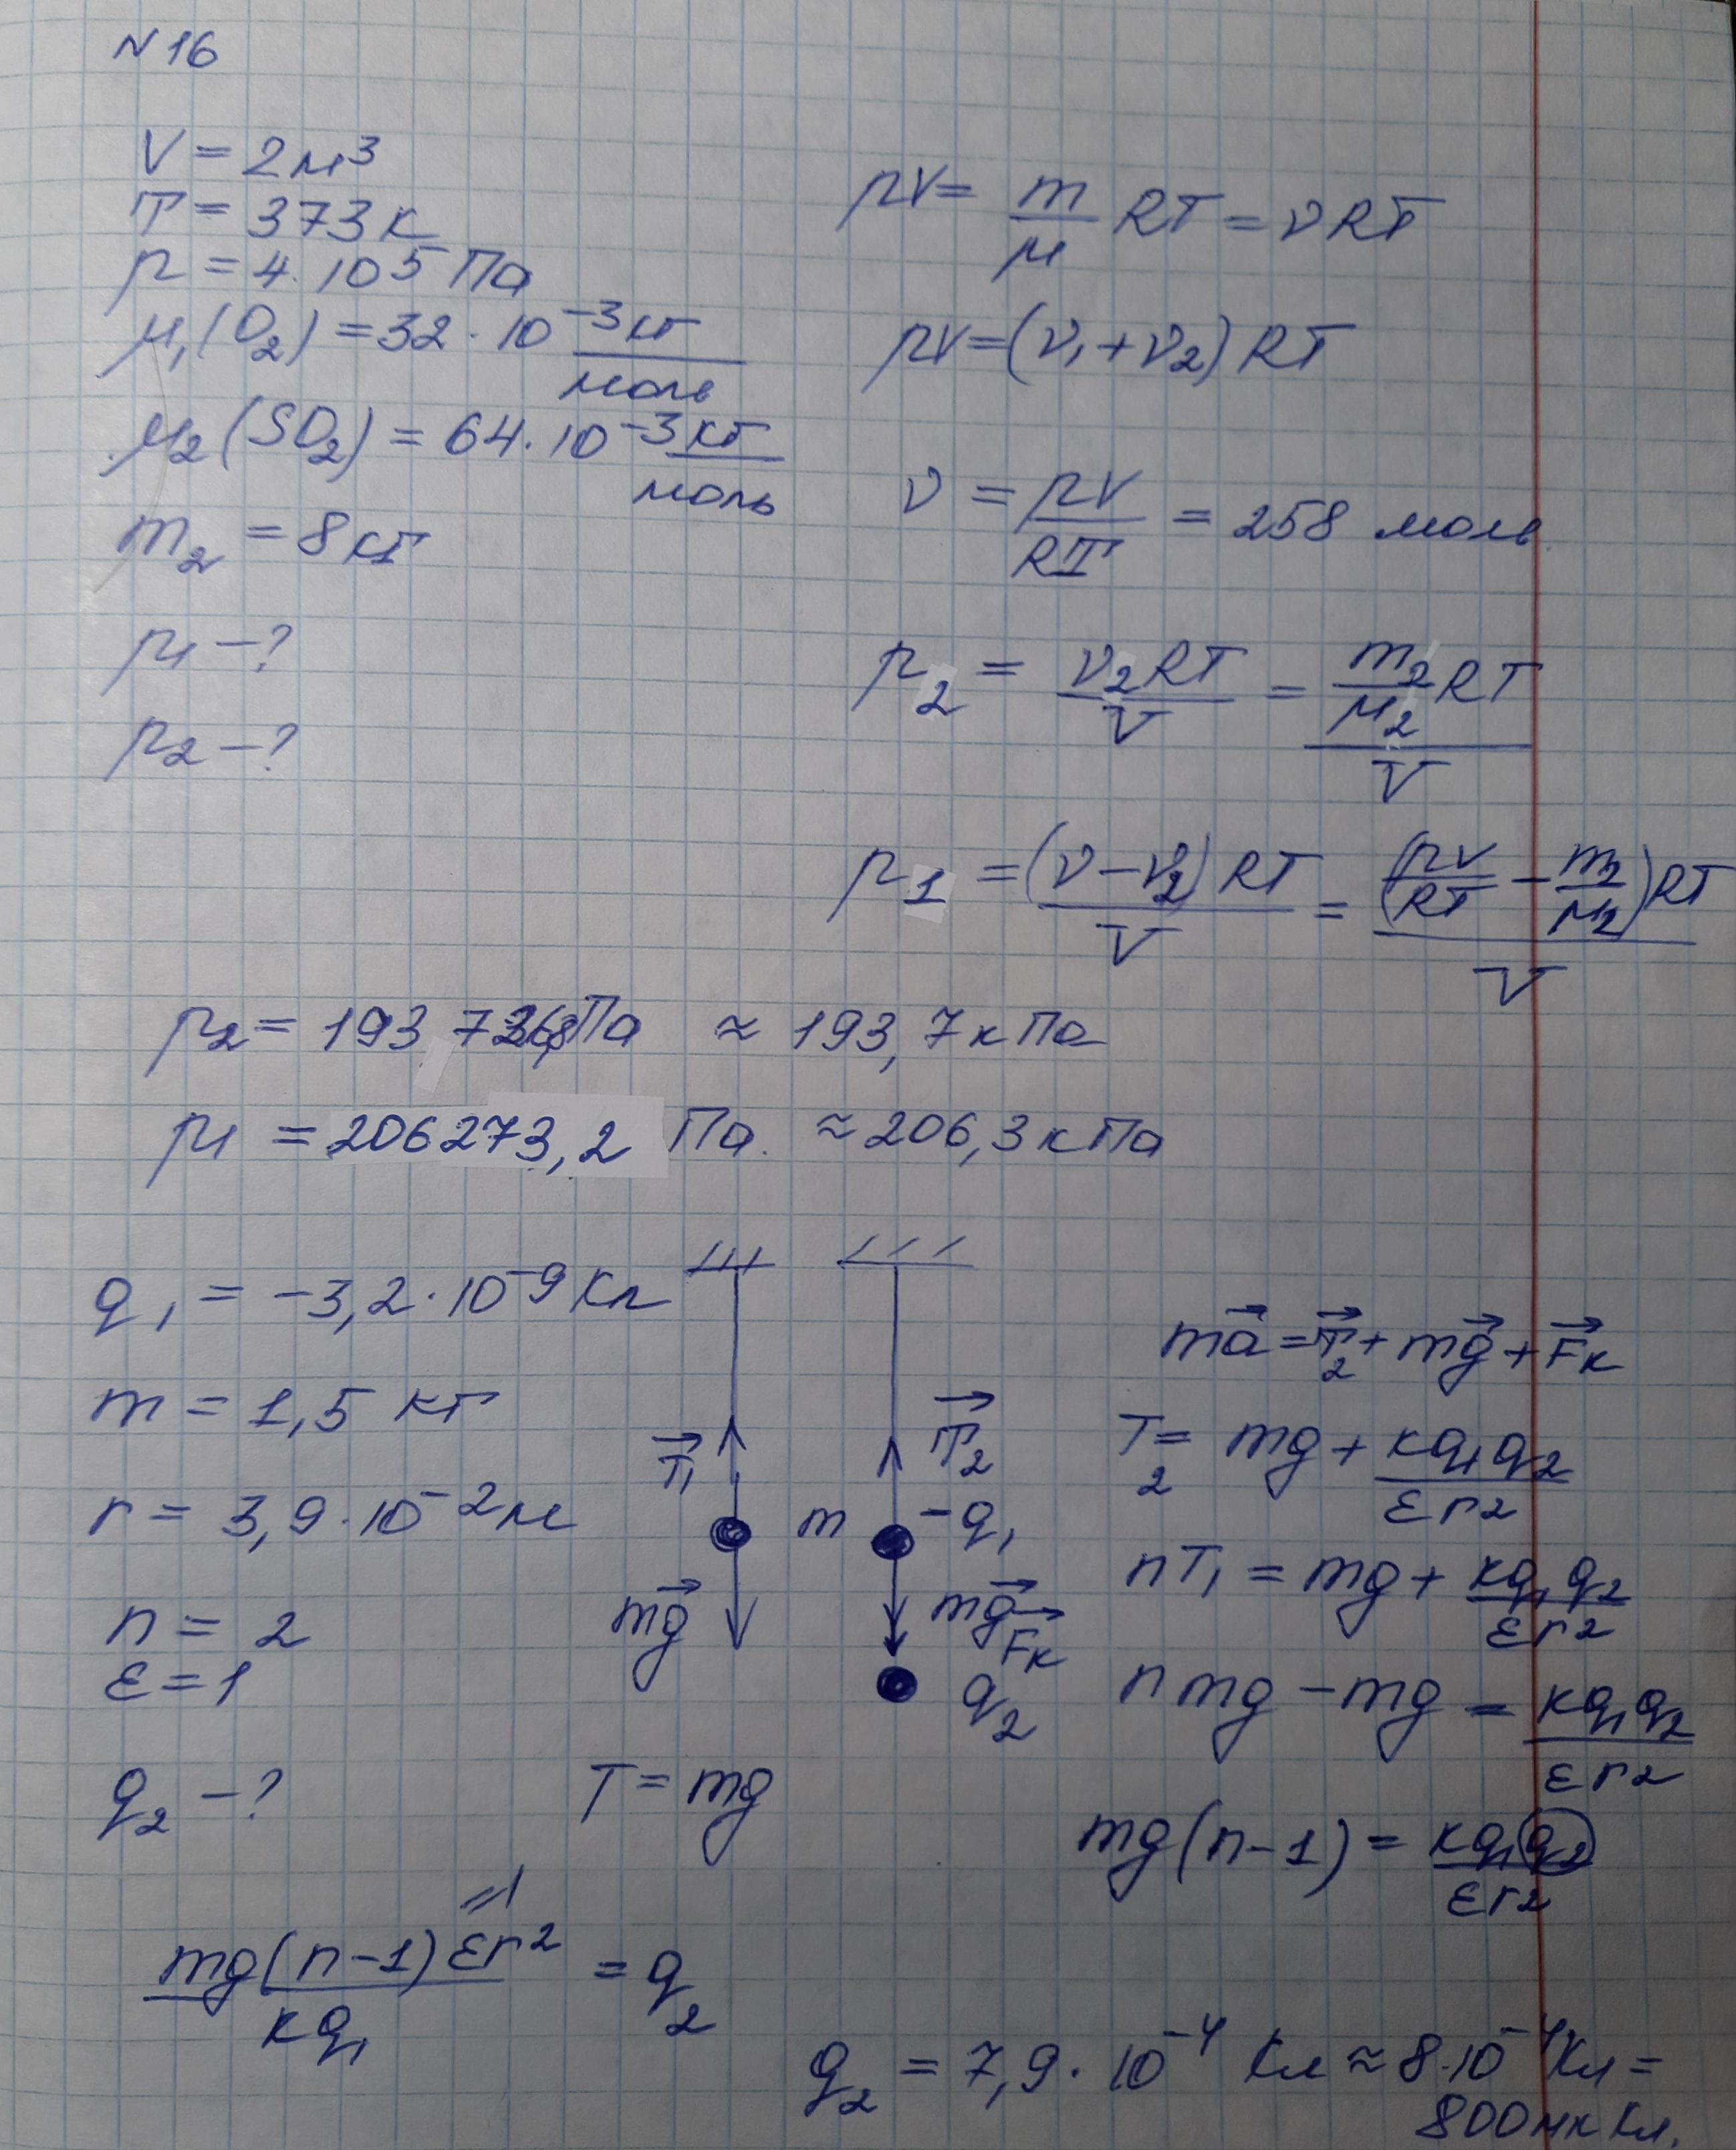 N16
V = 2 м³
T = 373 К
p = 4·10⁵ Па
μ₁(O₂) = 32·10⁻³ кг/моль
μ₂(SO₂) = 64·10⁻³ кг/моль
m₂ = 8 кг
p₁ – ?
p₂ – ?
pV = m/μ RT = νRT
pV = (ν₁ + ν₂) RT
ν = pV/RT = 258 моль
p₂ = ν₂RT/V = (m₂/μ₂ RT)/V
p₁ = (ν – ν₂) RT/V = (pV/RT – m₂/μ₂)RT/V
p₂ = 193 726,8 Па ≈ 193,7 кПа
p₁ = 206273,2 Па. ≈ 206,3 кПа
q₁ = –3,2·10⁻⁹ Кл
m = 1,5 кг
r = 3,9·10⁻² м
n = 2
ε = 1
q₂ – ?
T⃗₁
mg⃗
T = mg
m
T⃗₂
–q₁
mg⃗
F⃗к
q₂
ma⃗ = T⃗₂ + mg⃗ + F⃗к
T₂ = mg + кq₁q₂/εr²
nT₁ = mg + кq₁q₂/εr²
nmg – mg = кq₁q₂/εr²
mg(n–1) = кq₁q₂/εr²
=1
mg(n–1)εr²/кq₁ = q₂
q₂ = 7,9·10⁻⁴ Кл ≈ 8·10⁻⁴ Кл =
800 мк Кл.